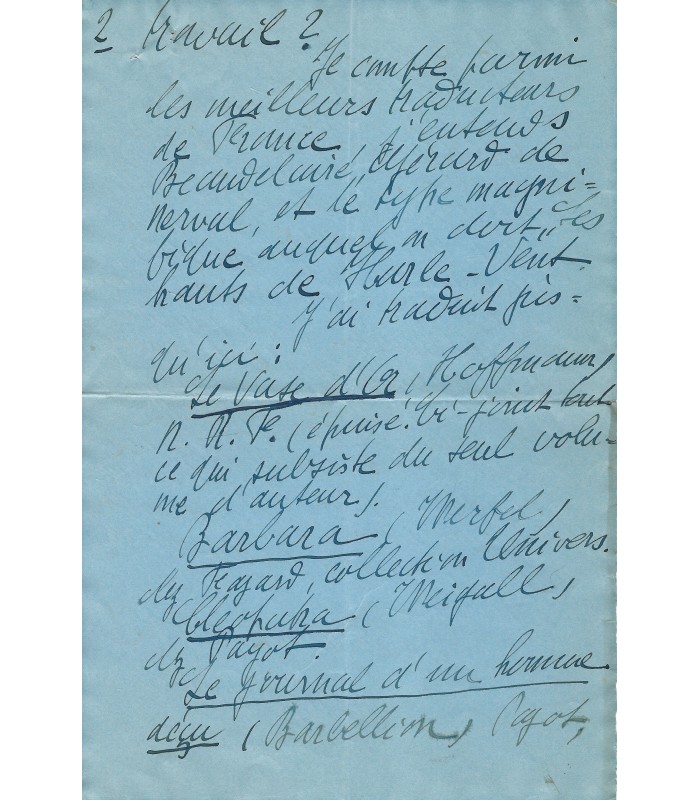 2 travail ?
Je compte parmi
les meilleurs traducteurs
de France, j'entends
Beaudelaire, Gérard de
Nerval, et le type magni-
fique auquel on doit "Les
hauts de Hurle-Vent.
J'ai traduit jus-
qu'ici :
Le Vase d'Or (Hoffmann)
N. R. F. (épuisé. Ci-joint tout
ce qui subsiste du seul volu-
me d'auteur).
Barbara (Werfel)
chz Fayard, collection Univers.
Cléopatra (Weigall)
chz Payot.
Le Journal d'un homme
déçu (Barbellion) Payot,